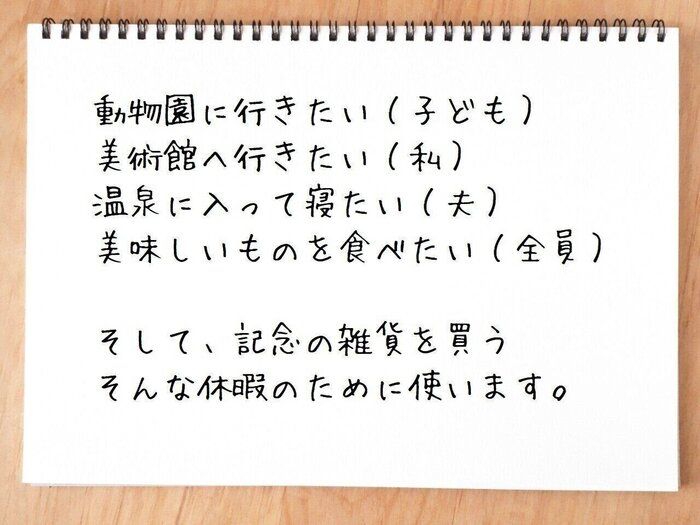 動物園に行きたい(子ども)
美術館へ行きたい(私)
温泉に入って寝たい(夫)
美味しいものを食べたい(全員)
そして、記念の雑貨を買う
そんな休暇のために使います。